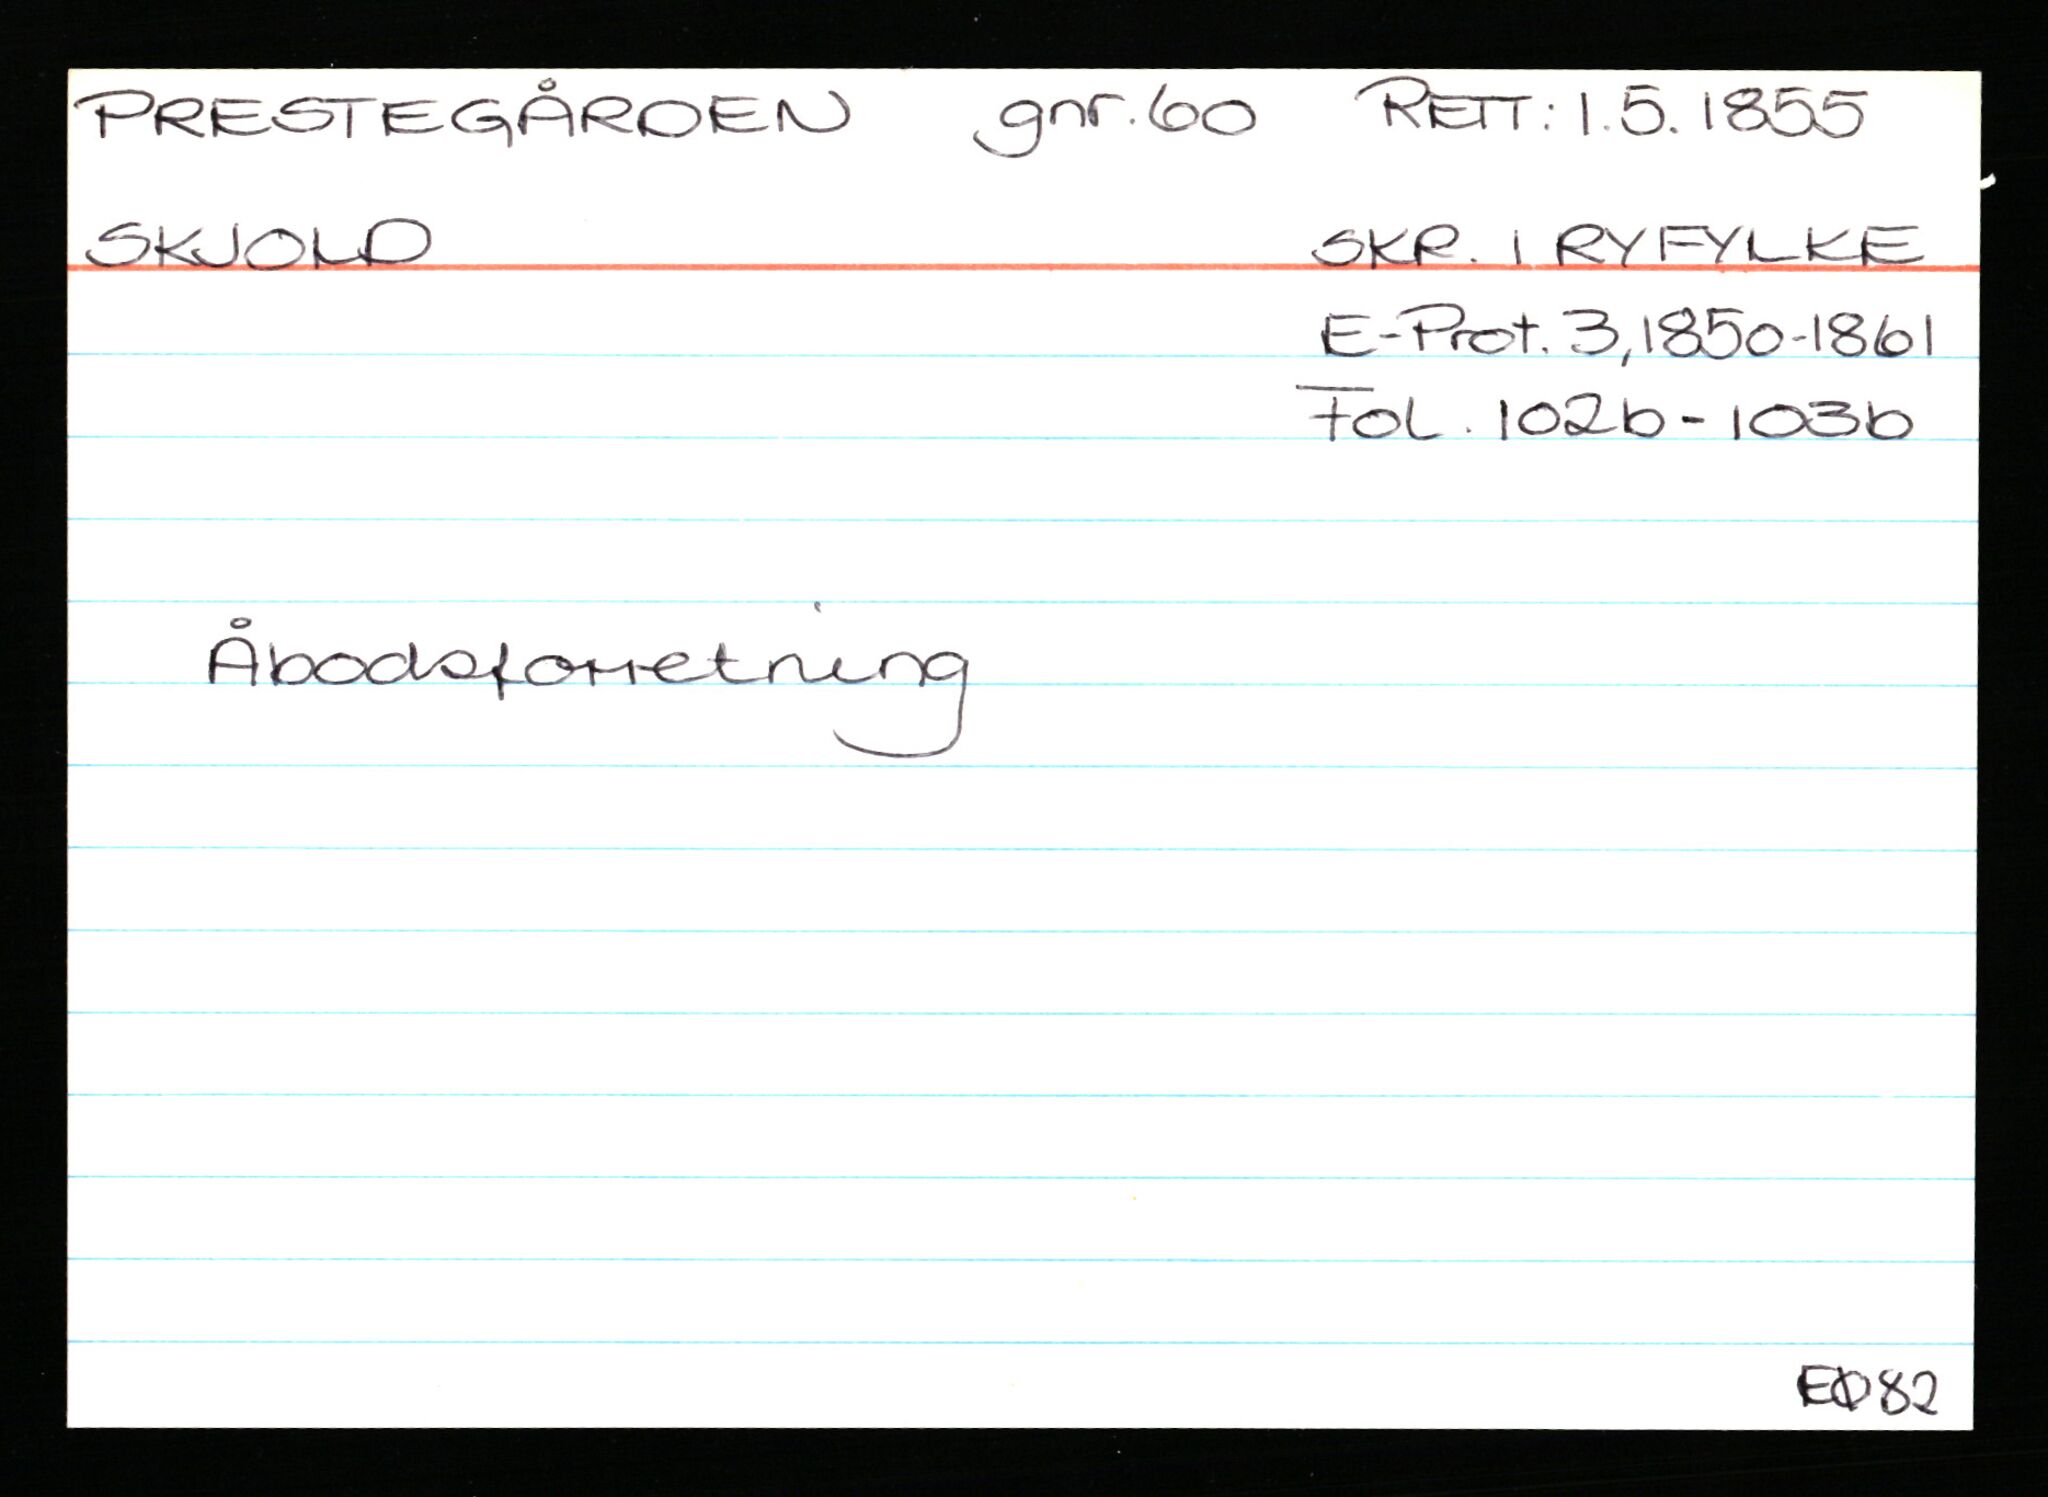 PRESTEGÅRDEN gnr. 60 RETT: 1.5.1855
SKJOLD SKR. I RYFYLKE
E-Prot. 3, 1850-1861
Fol. 102b - 103b
Åbodsforretning
EØ82